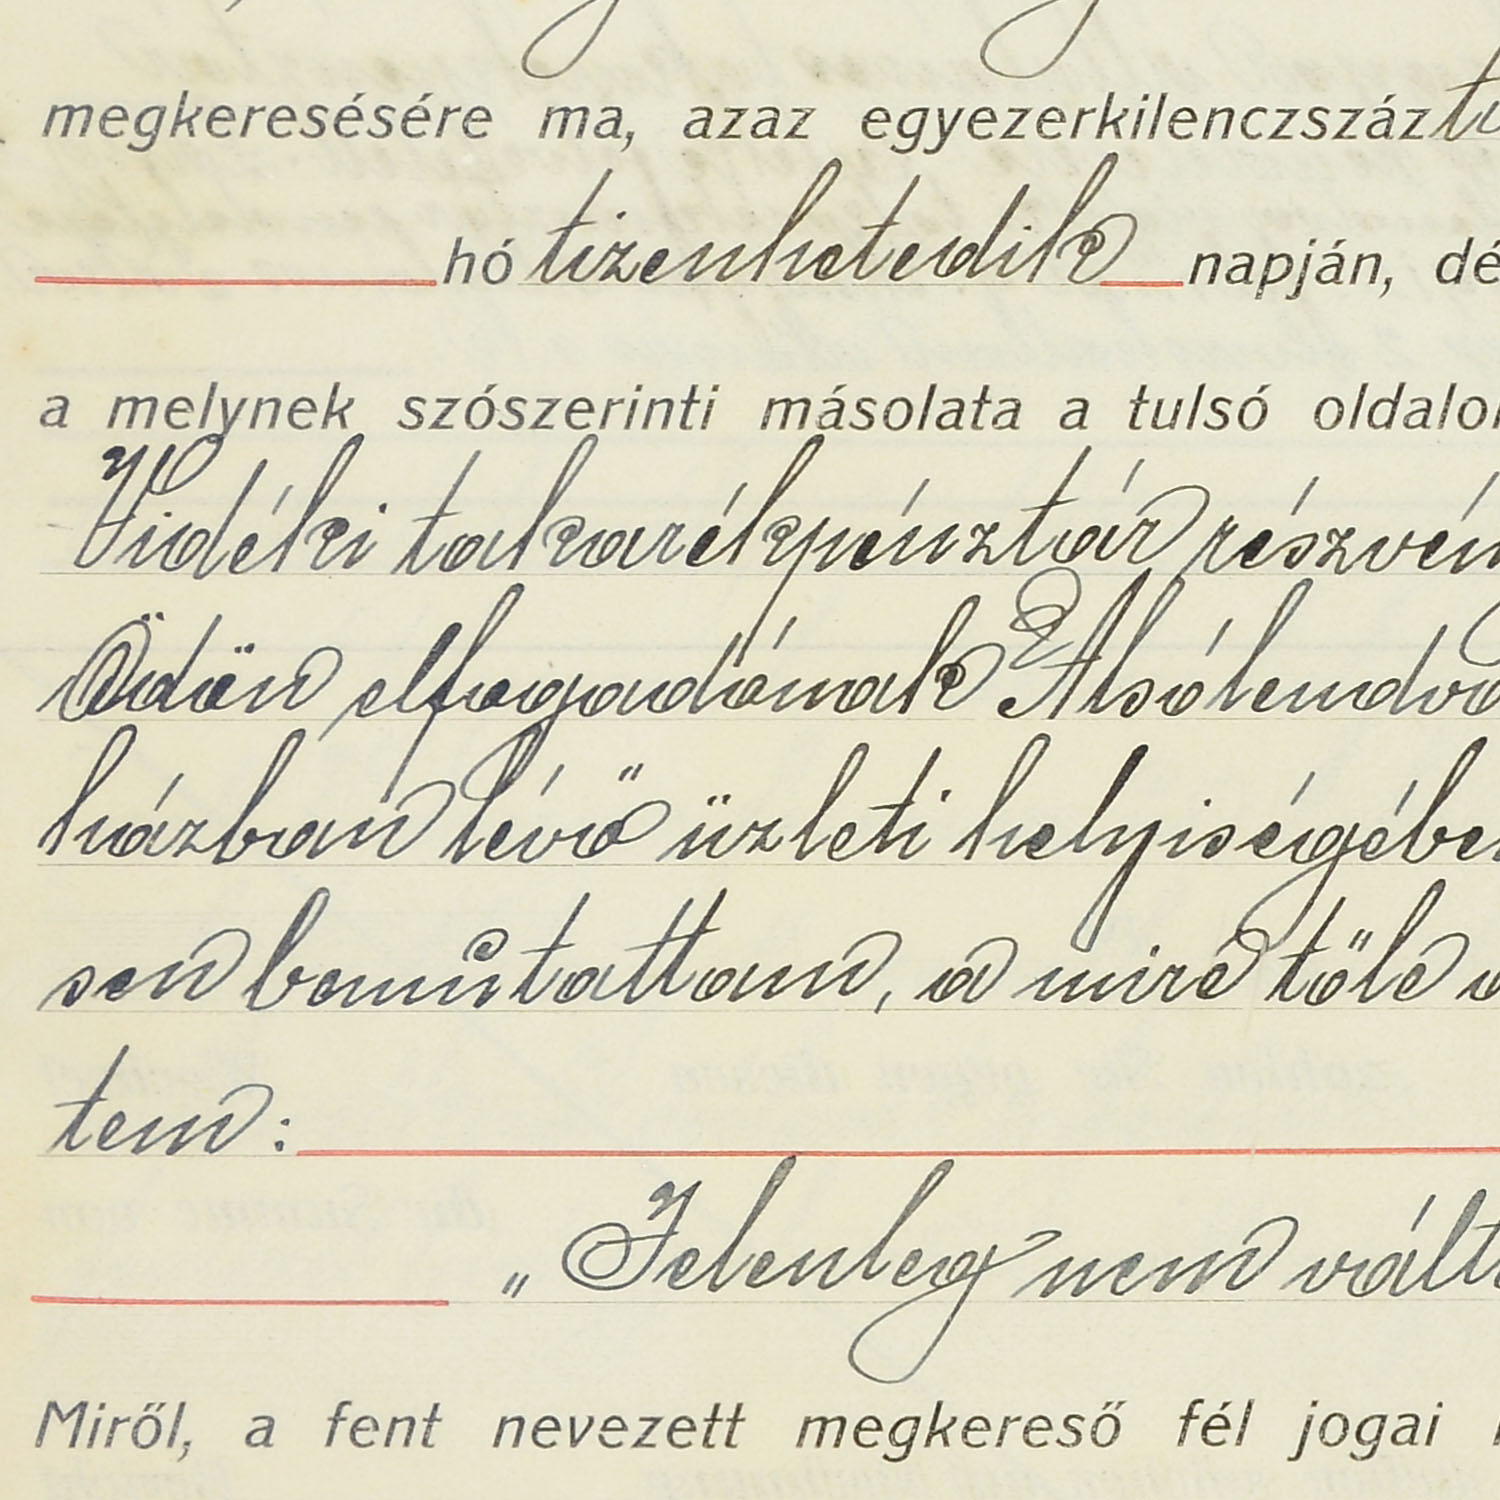 megkeresésére ma, azaz egyezerkilenczszáz
hó tizenhetedik napján, dé
a melynek szószerinti másolata a tulsó oldalon
Vidéki takarékpénztár részvén
Ödön elfogadónak Alsólendva
házban lévő üzleti helyiségében
sen bemutattam, a mire tőle
tem:
„Jelenleg nem vált
Miről, a fent nevezett megkereső fél jogai